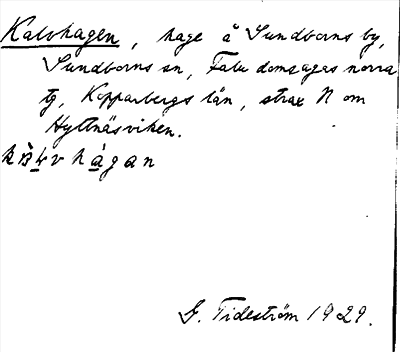 Kalvhagen, hage å Sundborns by,
Sundborns sn, Falu domsagas norra
tg, Kopparbergs län, strax N om
Hyttnäsviken.
G. Tideström 1929.